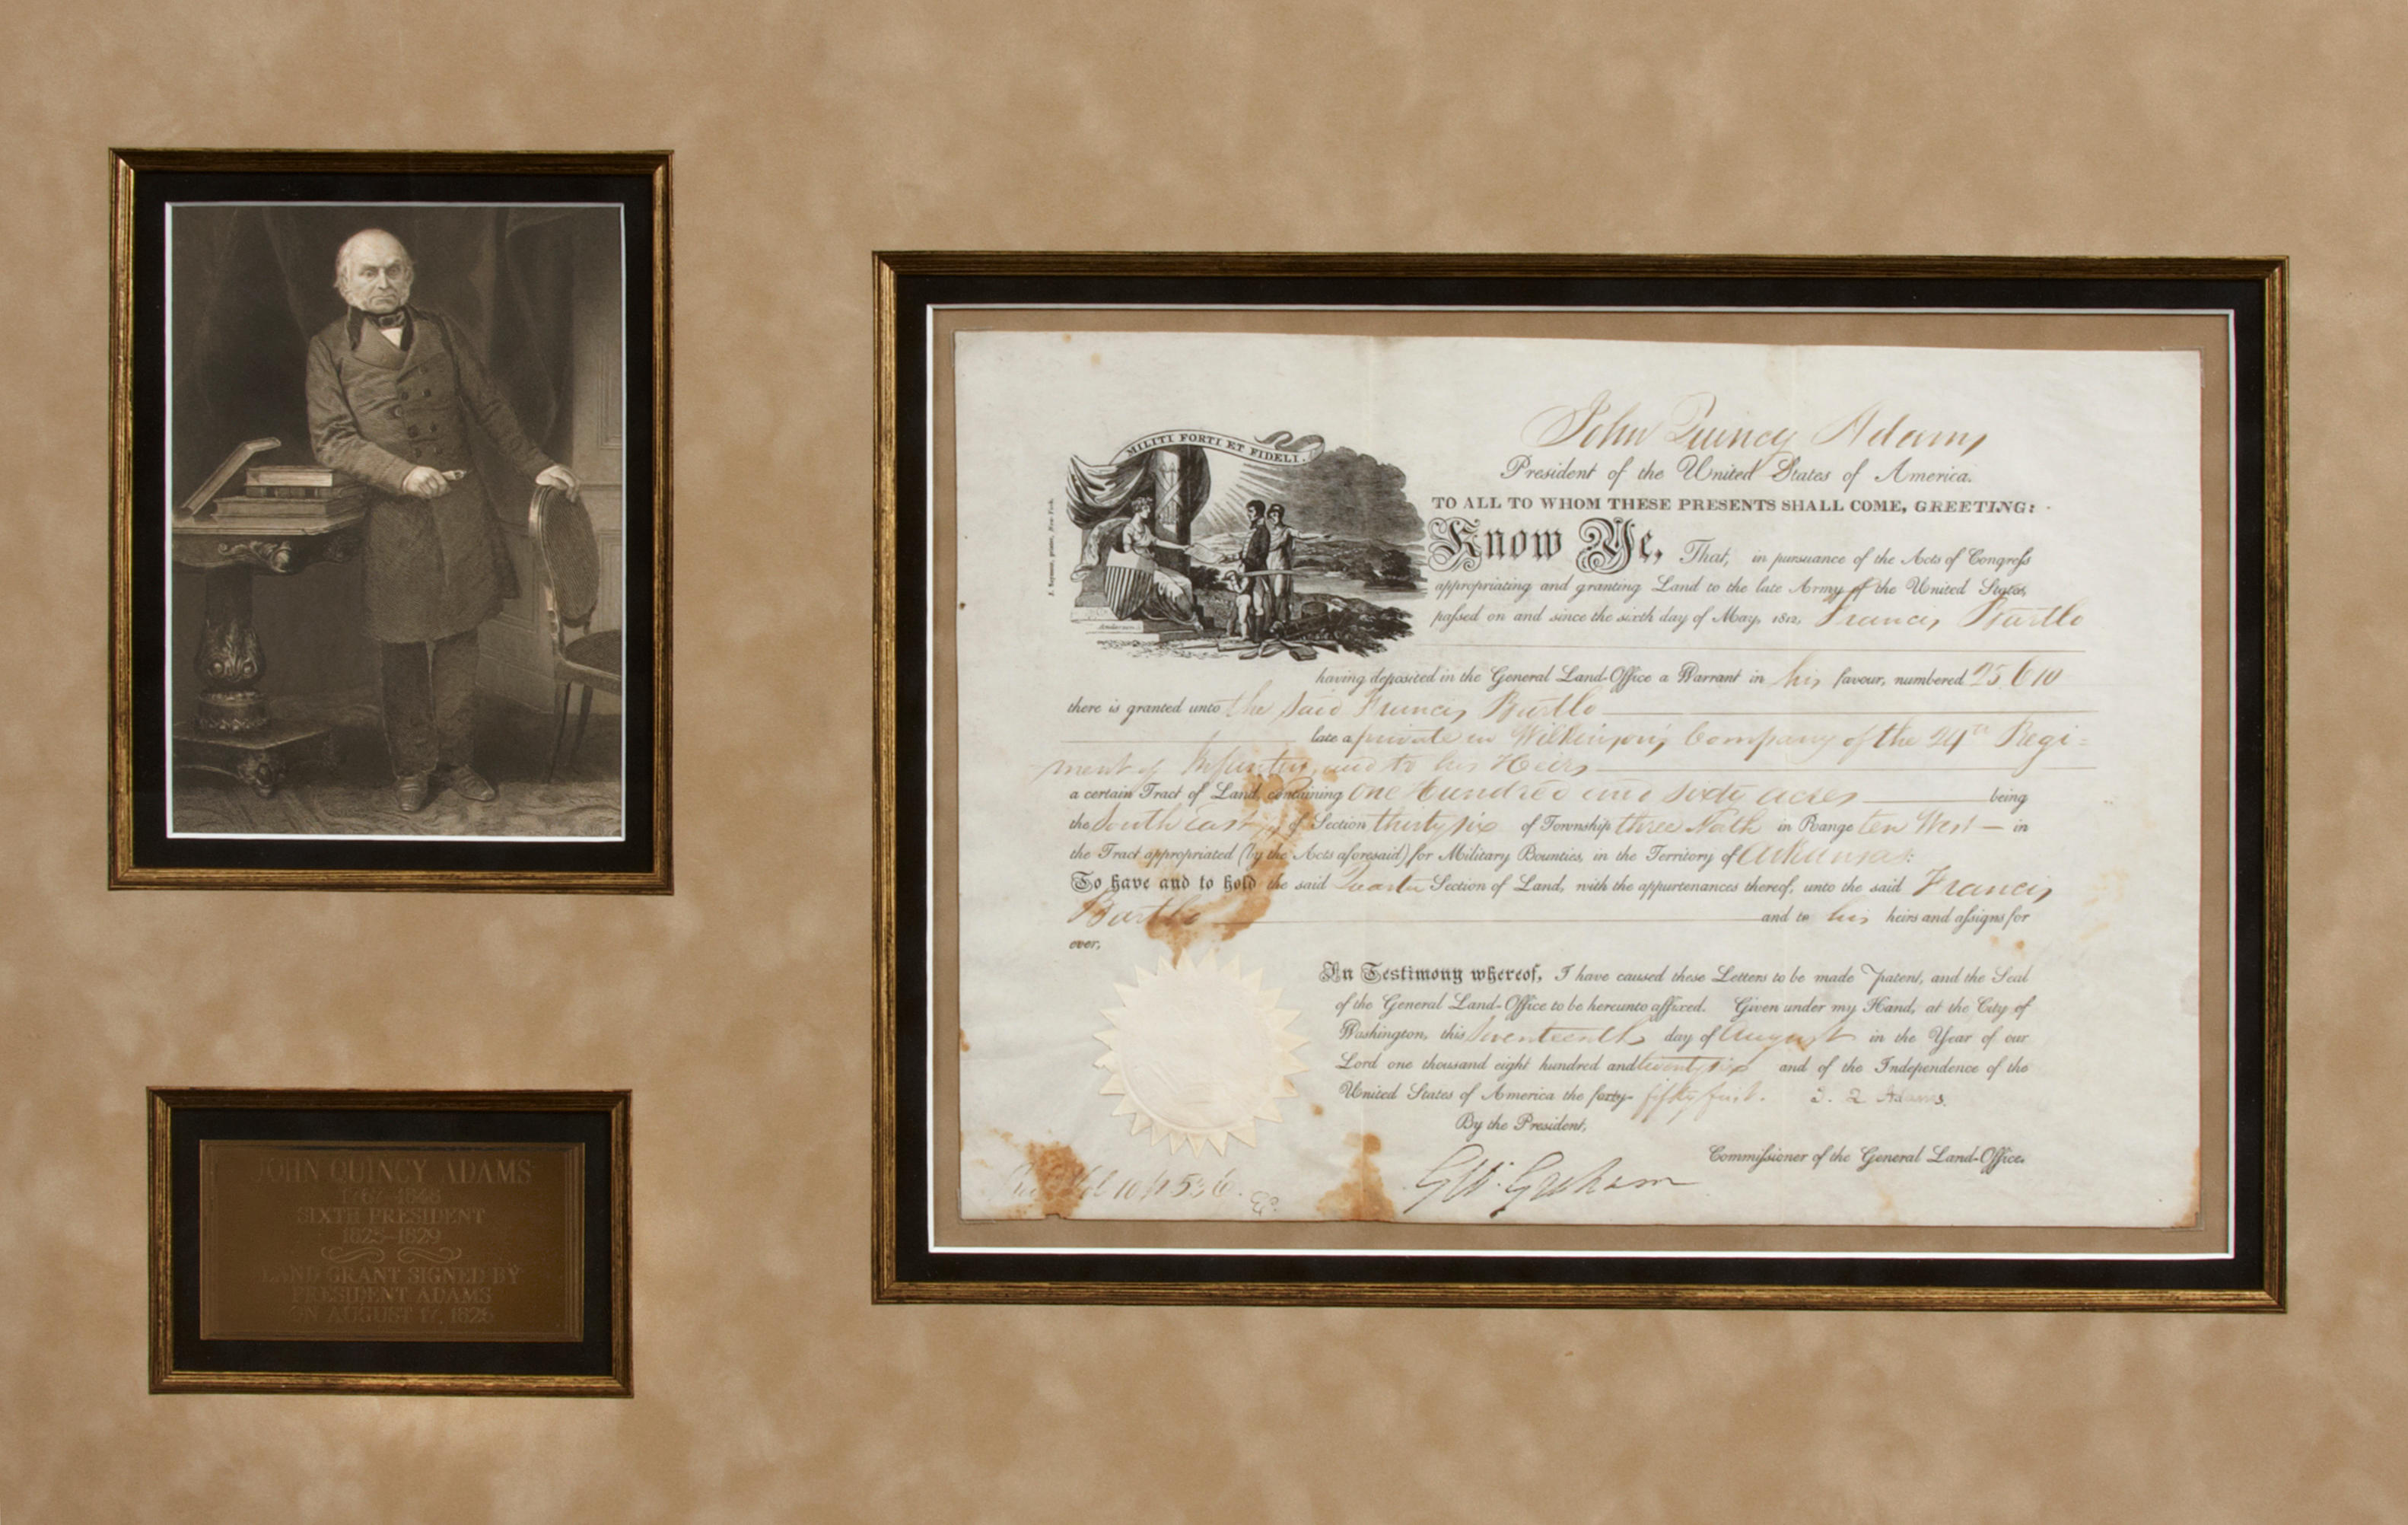 JOHN QUINCY ADAMS
1767-1848
SIXTH PRESIDENT
1825-1829
LAND GRANT SIGNED BY
PRESIDENT ADAMS
ON AUGUST 17, 1826
MILITI FORTI ET FIDELI.
John Quincy Adams
President of the United States of America.
TO ALL TO WHOM THESE PRESENTS SHALL COME, GREETING:
Know Ye, That, in pursuance of the Acts of Congress
appropriating and granting Land to the late Army of the United States,
passed on and since the sixth day of May, 1812, Francis Bartlo
having deposited in the General Land-Office a Warrant in his favour, numbered 25 610
there is granted unto the said Francis Bartlo
late a private in Wilkinson's Company of the 24th Regi=
ment of Infantry, and to his Heirs
a certain Tract of Land, containing One Hundred and sixty acres being
the South east of Section thirty six of Township three North in Range ten West — in
the Tract appropriated (by the Acts aforesaid) for Military Bounties, in the Territory of Arkansas:
To have and to hold the said Quarter Section of Land, with the appurtenances thereof, unto the said Francis
Bartlo and to his heirs and assigns for
ever,
In Testimony whereof, I have caused these Letters to be made Patent, and the Seal
of the General Land-Office to be hereunto affixed. Given under my Hand, at the City of
Washington, this Seventeenth day of August in the Year of our
Lord one thousand eight hundred and twenty six and of the Independence of the
United States of America the forty- fifty first. J. Q. Adams.
By the President,
Commissioner of the General Land-Office.
Geo: Graham